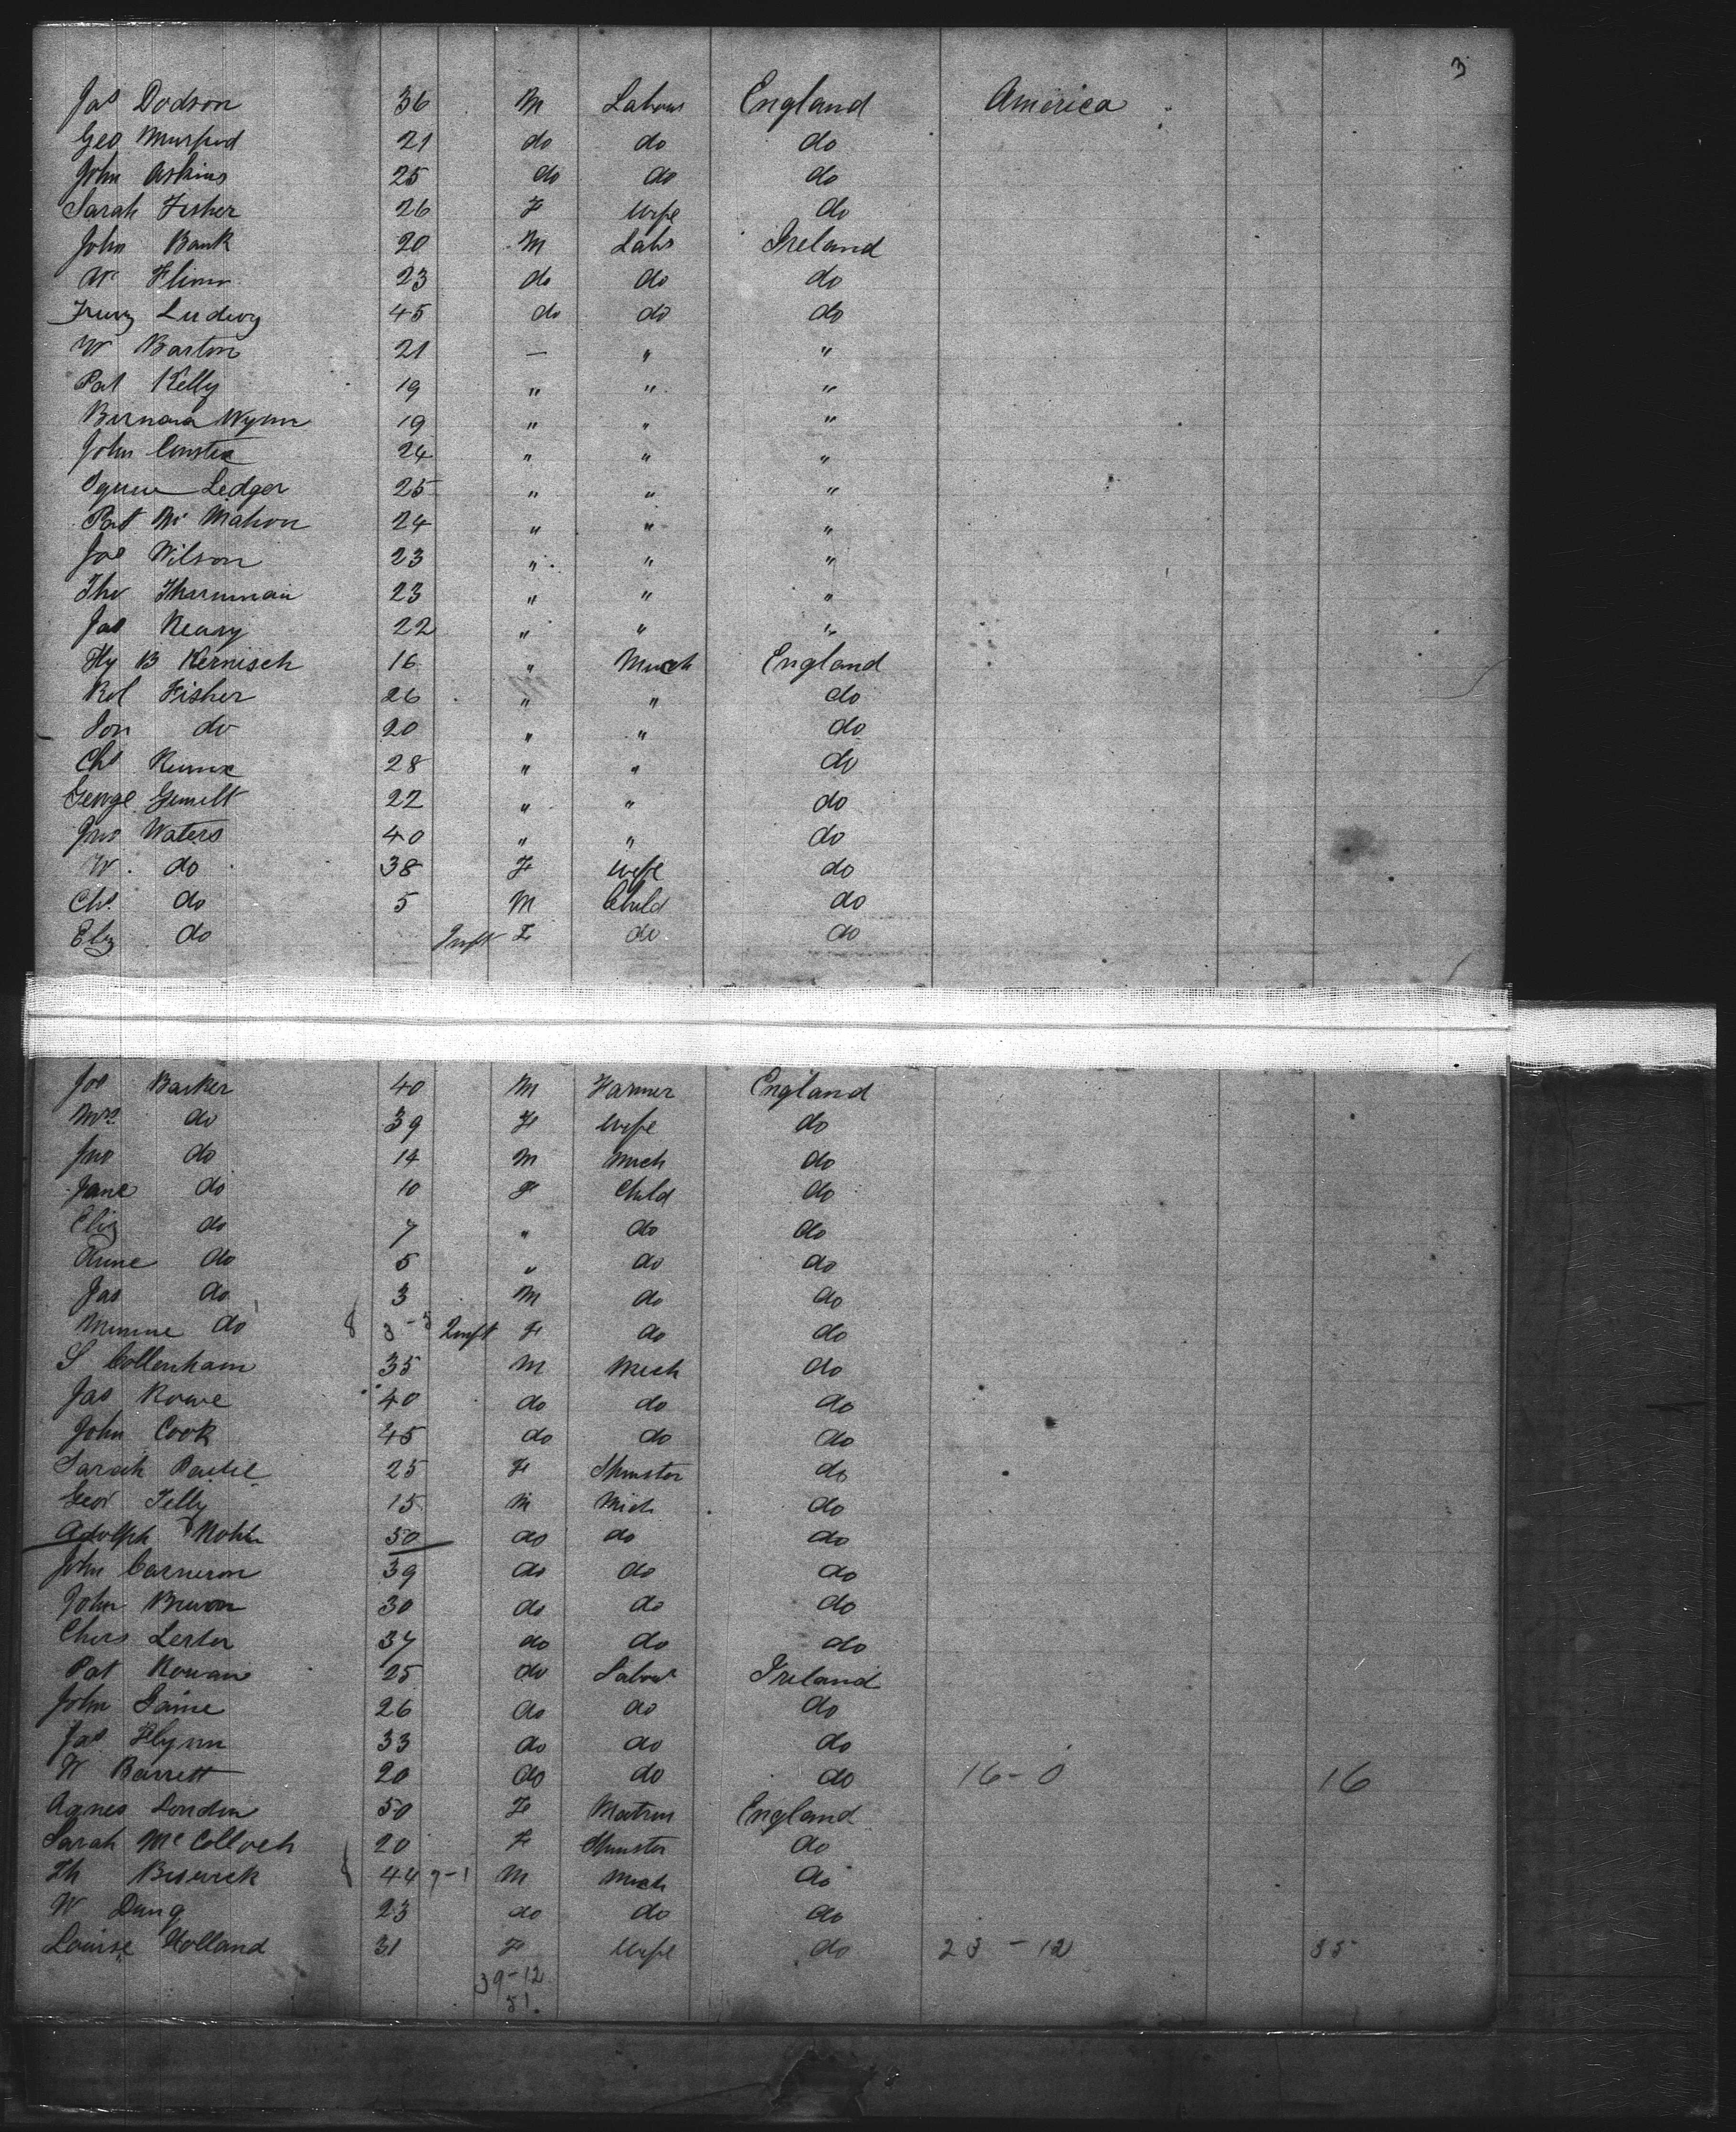 3
Jas Dodson 36 M Labour England America
Geo 21 do do do
John Askins 25 do do do
Sarah Fisher 26 F Wife do
John Bank 20 M Labr Ireland
W Flinn 23 do do do
Ludwig 45 do do do
W Barton 21 — " "
Pat Kelly 19 " " "
Bernard Wynn 19 " " "
John 24 " " "
Ledger 25 " " "
Pat Mc Mahon 24 " " "
Jos Wilson 23 " " "
Tho 23 " " "
Jas Neary 22 " " "
Hy B Kernisch 16 " Mech England
Fisher 26 " " do
do 20 " " do
Chs 28 " " do
George 22 " " do
Jno Waters 40 " " do
W. do 38 F Wife do
Chs do 5 M Child do
Eliz do Inft F do do
Jos Barker 40 M Farmer England
Mrs do 39 F Wife do
Jno do 14 M Mech do
Jane do 10 F Child do
Eliz do 7 " do do
Anne do 5 " do do
Jas do 3 M do do
Minnie do 3 Inft F do do
S Collenham 35 M Mech do
Jas Rowe 40 do do do
John Cook 45 do do do
Sarah 25 F Spinster do
Geo Tilly 15 M Mech do
Adolph 50 do do do
John Carneron 39 do do do
John 30 do do do
Chers Lester 37 do do do
Pat Rowan 25 do Labour Ireland
John 26 do do do
Jas Flynn 33 do do do
W Barrett 20 do do do 16-0 16
Agnes London 50 F Matron England
Sarah McColloch 20 F Spinster do
Th 44 7-1 M Mech do
W 23 do do do
Louise Holland 31 F Wife do 23-12 35
39-12
51.